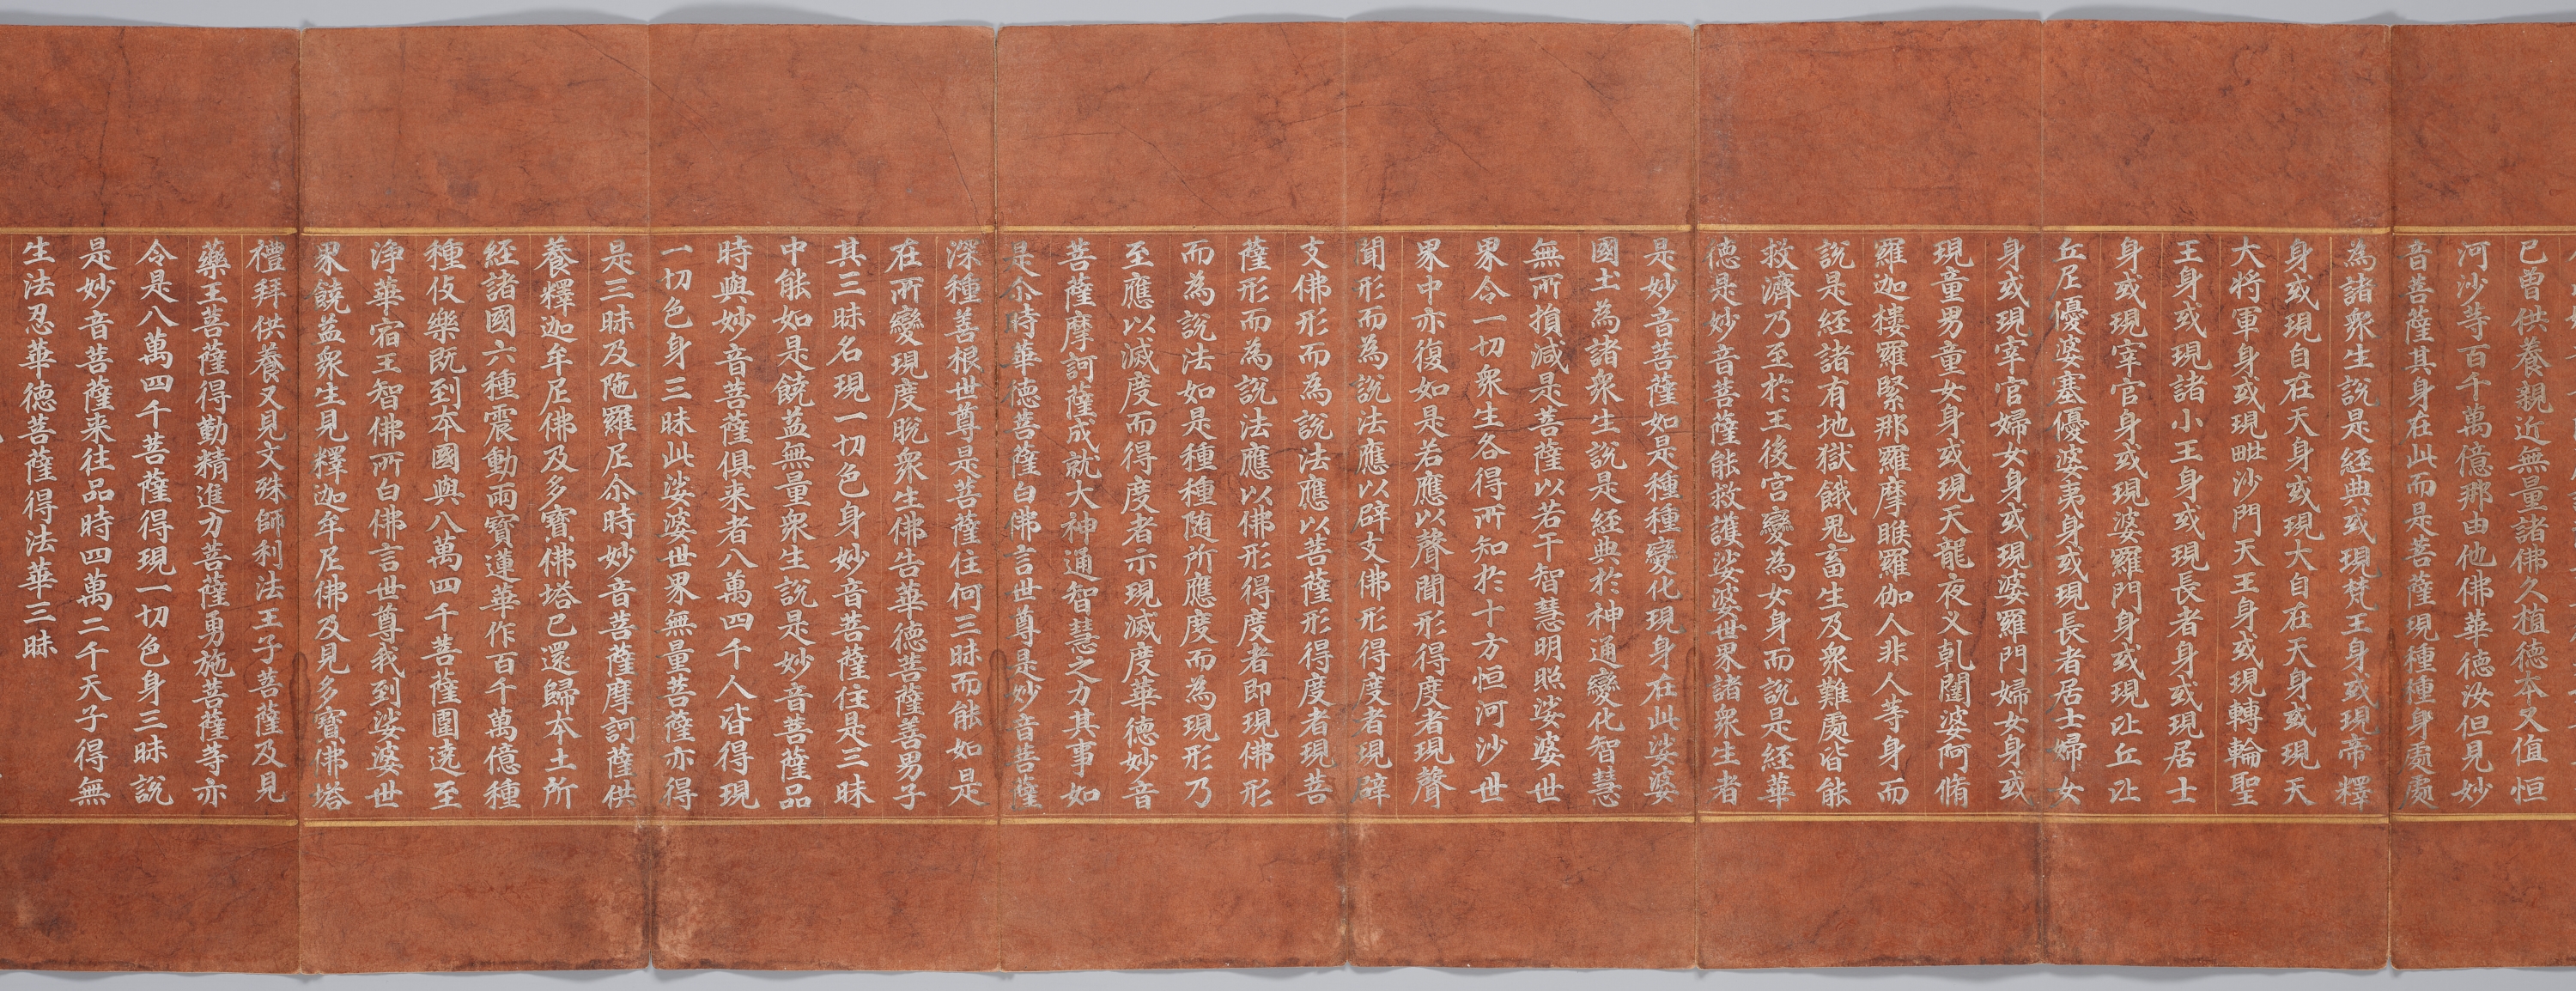 已曾供養親近無量諸佛久植德本又值恒
河沙等百千萬億那由他佛華德汝但見妙
音菩薩其身在此而是菩薩現種種身處處
為諸衆生說是經典或現梵王身或現帝釋
身或現自在天身或現大自在天身或現天
大将軍身或現毗沙門天王身或現轉輪聖
王身或現諸小王身或現長者身或現居士
身或現宰官身或現婆羅門身或現比丘比
丘尼優婆塞優婆夷身或現長者居士婦女
身或現宰官婦女身或現婆羅門婦女身或
現童男童女身或現天龍夜叉乹闥婆阿脩
羅迦樓羅緊那羅摩睺羅伽人非人等身而
說是經諸有地獄餓鬼畜生及衆難處皆能
救濟乃至於王後宮變為女身而說是經華
德是妙音菩薩能救護娑婆世界諸衆生者
是妙音菩薩如是種種變化現身在此娑婆
國土為諸衆生說是經典於神通變化智慧
無所損減是菩薩以若干智慧明照娑婆世
界令一切衆生各得所知於十方恒河沙世
界中亦復如是若應以聲聞形得度者現聲
聞形而為說法應以辟支佛形得度者現辟
支佛形而為說法應以菩薩形得度者現菩
薩形而為說法應以佛形得度者即現佛形
而為說法如是種種随所應度而為現形乃
至應以滅度而得度者示現滅度華德妙音
菩薩摩訶薩成就大神通智慧之力其事如
是尒時華德菩薩白佛言世尊是妙音菩薩
深種善根世尊是菩薩住何三昧而能如是
在所變現度脫衆生佛告華德菩薩善男子
其三昧名現一切色身妙音菩薩住是三昧
中能如是饒益無量衆生說是妙音菩薩品
時與妙音菩薩俱来者八萬四千人皆得現
一切色身三昧此娑婆世界無量菩薩亦得
是三昧及陁羅尼尒時妙音菩薩摩訶薩供
養釋迦牟尼佛及多寶佛塔已還歸本土所
經諸國六種震動雨寶蓮華作百千萬億種
種伎樂既到本國與八萬四千菩薩圍遶至
淨華宿王智佛所白佛言世尊我到娑婆世
界饒益衆生見釋迦牟尼佛及見多寶佛塔
禮拜供養又見文殊師利法王子菩薩及見
藥王菩薩得勤精進力菩薩勇施菩薩等亦
令是八萬四千菩薩得現一切色身三昧說
是妙音菩薩来往品時四萬二千天子得無
生法忍華德菩薩得法華三昧